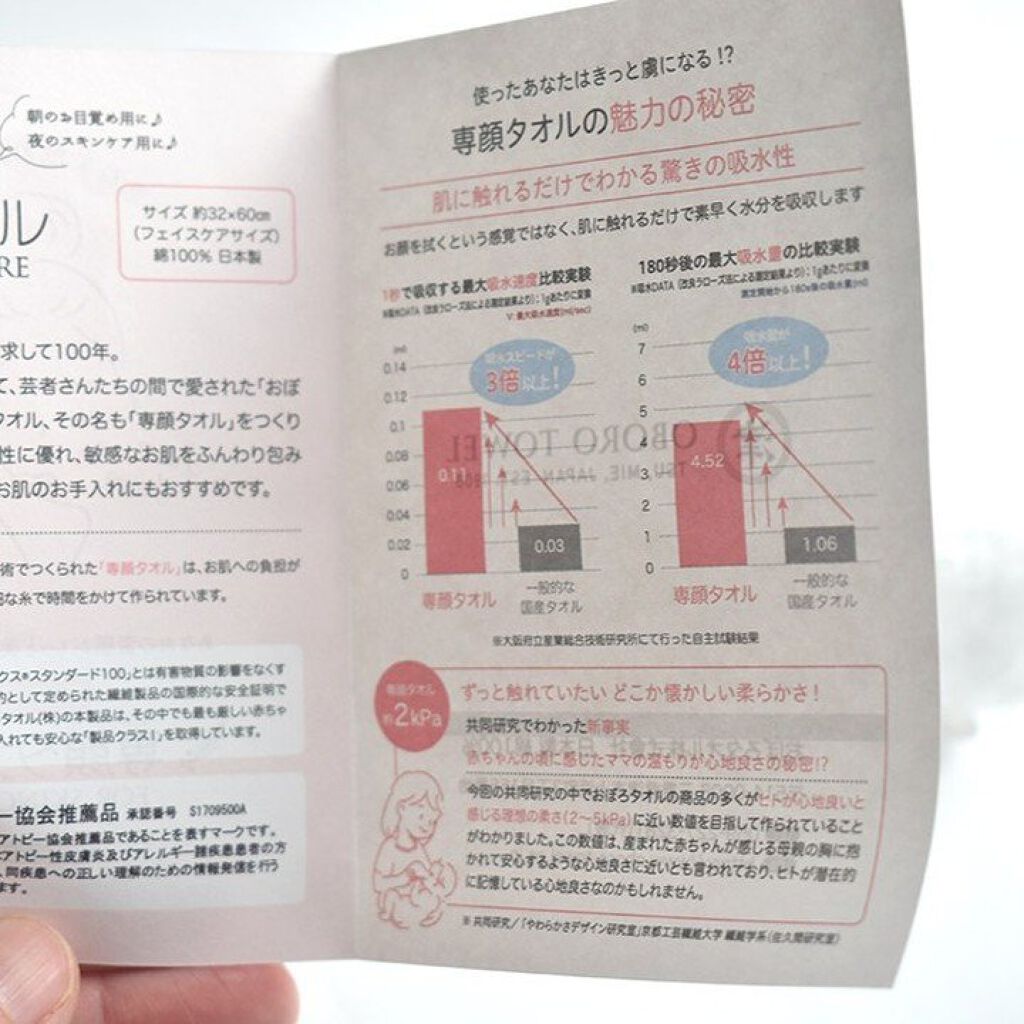 朝のお目覚め用に♪
夜のスキンケア用に♪
ル
RE
サイズ 約32×60㎝
(フェイスケアサイズ)
綿100% 日本製
求して100年。
て、芸者さんたちの間で愛された「おぼ
タオル、その名も「専顔タオル」をつくり
性に優れ、敏感なお肌をふんわり包み
お肌のお手入れにもおすすめです。
術でつくられた「専顔タオル」は、お肌への負担が
な糸で時間をかけて作られています。
クス®スタンダード100」とは有害物質の影響をなくす
的として定められた繊維製品の国際的な安全証明で
タオル(株)の本製品は、その中でも最も厳しい赤ちゃ
入れても安心な「製品クラスⅠ」を取得しています。
ー協会推薦品 承認番号 S1709500A
アトピー協会推薦品であることを表すマークです。
アトピー性皮膚炎及びアレルギー諸疾患患者の方
、同疾患への正しい理解のための情報発信を行う
ます。
使ったあなたはきっと虜になる!?
専顔タオルの魅力の秘密
肌に触れるだけでわかる驚きの吸水性
お顔を拭くという感覚ではなく、肌に触れるだけで素早く水分を吸収します
1秒で吸収する最大吸水速度比較実験
※吸水DATA (改良ラローズ法による測定結果より):1gあたりに変換
V:最大吸水速度(ml/sec)
(ml)
0.14
0.12
0.1
0.08
0.06
0.04
0.02
0
吸水スピードが
3倍以上!
0.11
0.03
専顔タオル
一般的な
国産タオル
180秒後の最大吸水量の比較実験
※吸水DATA (改良ラローズ法による測定結果より):1gあたりに変換
測定開始から180s後の吸水量(ml)
(ml)
7
6
5
4
3
2
1
0
吸水量が
4倍以上!
4.52
1.06
専顔タオル
一般的な
国産タオル
OBORO TOWEL
TSU, MIE, JAPAN EST.
※大阪府立産業総合技術研究所にて行った自主試験結果
専顔タオル
約2kPa
ずっと触れていたい どこか懐かしい柔らかさ!
共同研究でわかった新事実
赤ちゃんの頃に感じたママの温もりが心地良さの秘密!?
今回の共同研究の中でおぼろタオルの商品の多くがヒトが心地良いと
感じる理想の柔さ(2～5kPa)に近い数値を目指して作られていること
がわかりました。この数値は、産まれた赤ちゃんが感じる母親の胸に抱
かれて安心するような心地良さに近いとも言われており、ヒトが潜在的
に記憶している心地良さなのかもしれません。
※ 共同研究/「やわらかさデザイン研究室」京都工芸繊維大学 繊維学系(佐久間研究室)